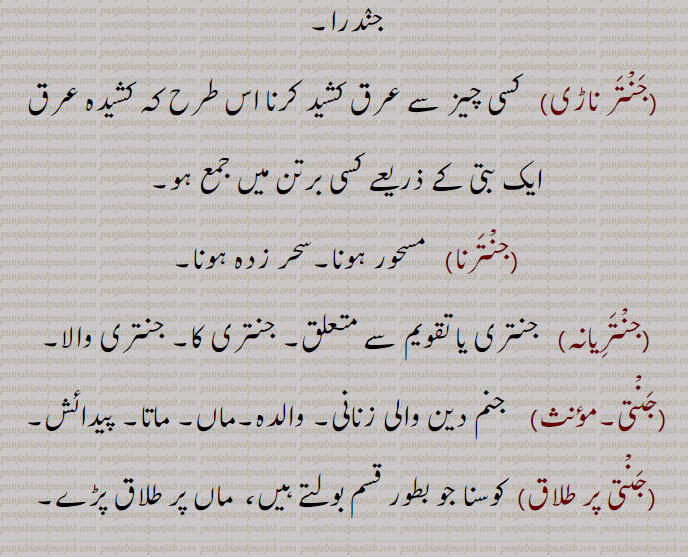 جنْدرا۔
(جَنْتَر ناڑی) کسی چیز سے عرق کشید کرنا اس طرح کہ کشیدہ عرق
ایک بتی کے ذریعے کسی برتن میں جمع ہو۔
(جنْتَرنا) مسحور ہونا۔سحر زدہ ہونا۔
(جنْتَرِیانہ) جنتری یا تقویم سے متعلق۔ جنتری کا۔ جنتری والا۔
(جَنْتی۔مؤنث) جنم دین والی زنانی۔ والدہ۔ماں۔ ماتا۔ پیدائش۔
(جَنْتی پر طلاق) کوسنا جو بطور قسم بولتے ہیں، ماں پر طلاق پڑے۔